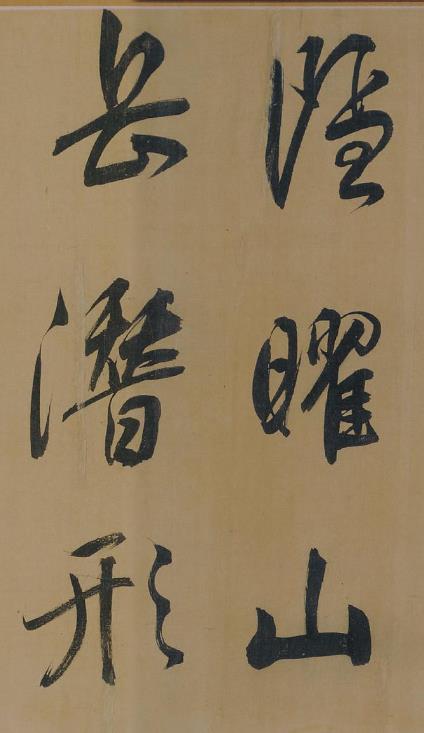 隱曜山
岳潜形